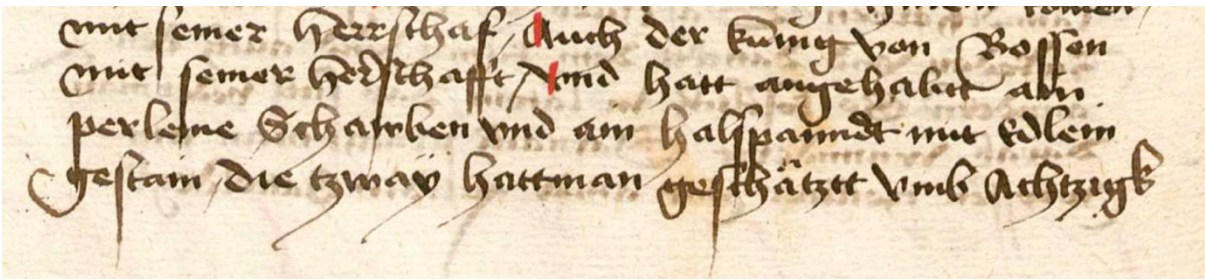 mit seiner Herrschaf, Auch der kunig von Bossen
mit seiner Herschafft, Vnd hatt angehabtt ain
perleine Schawben vnd ain halspanndt mit Edlem
gestain, die tzway hattman geschätztt vmb Achtzigk